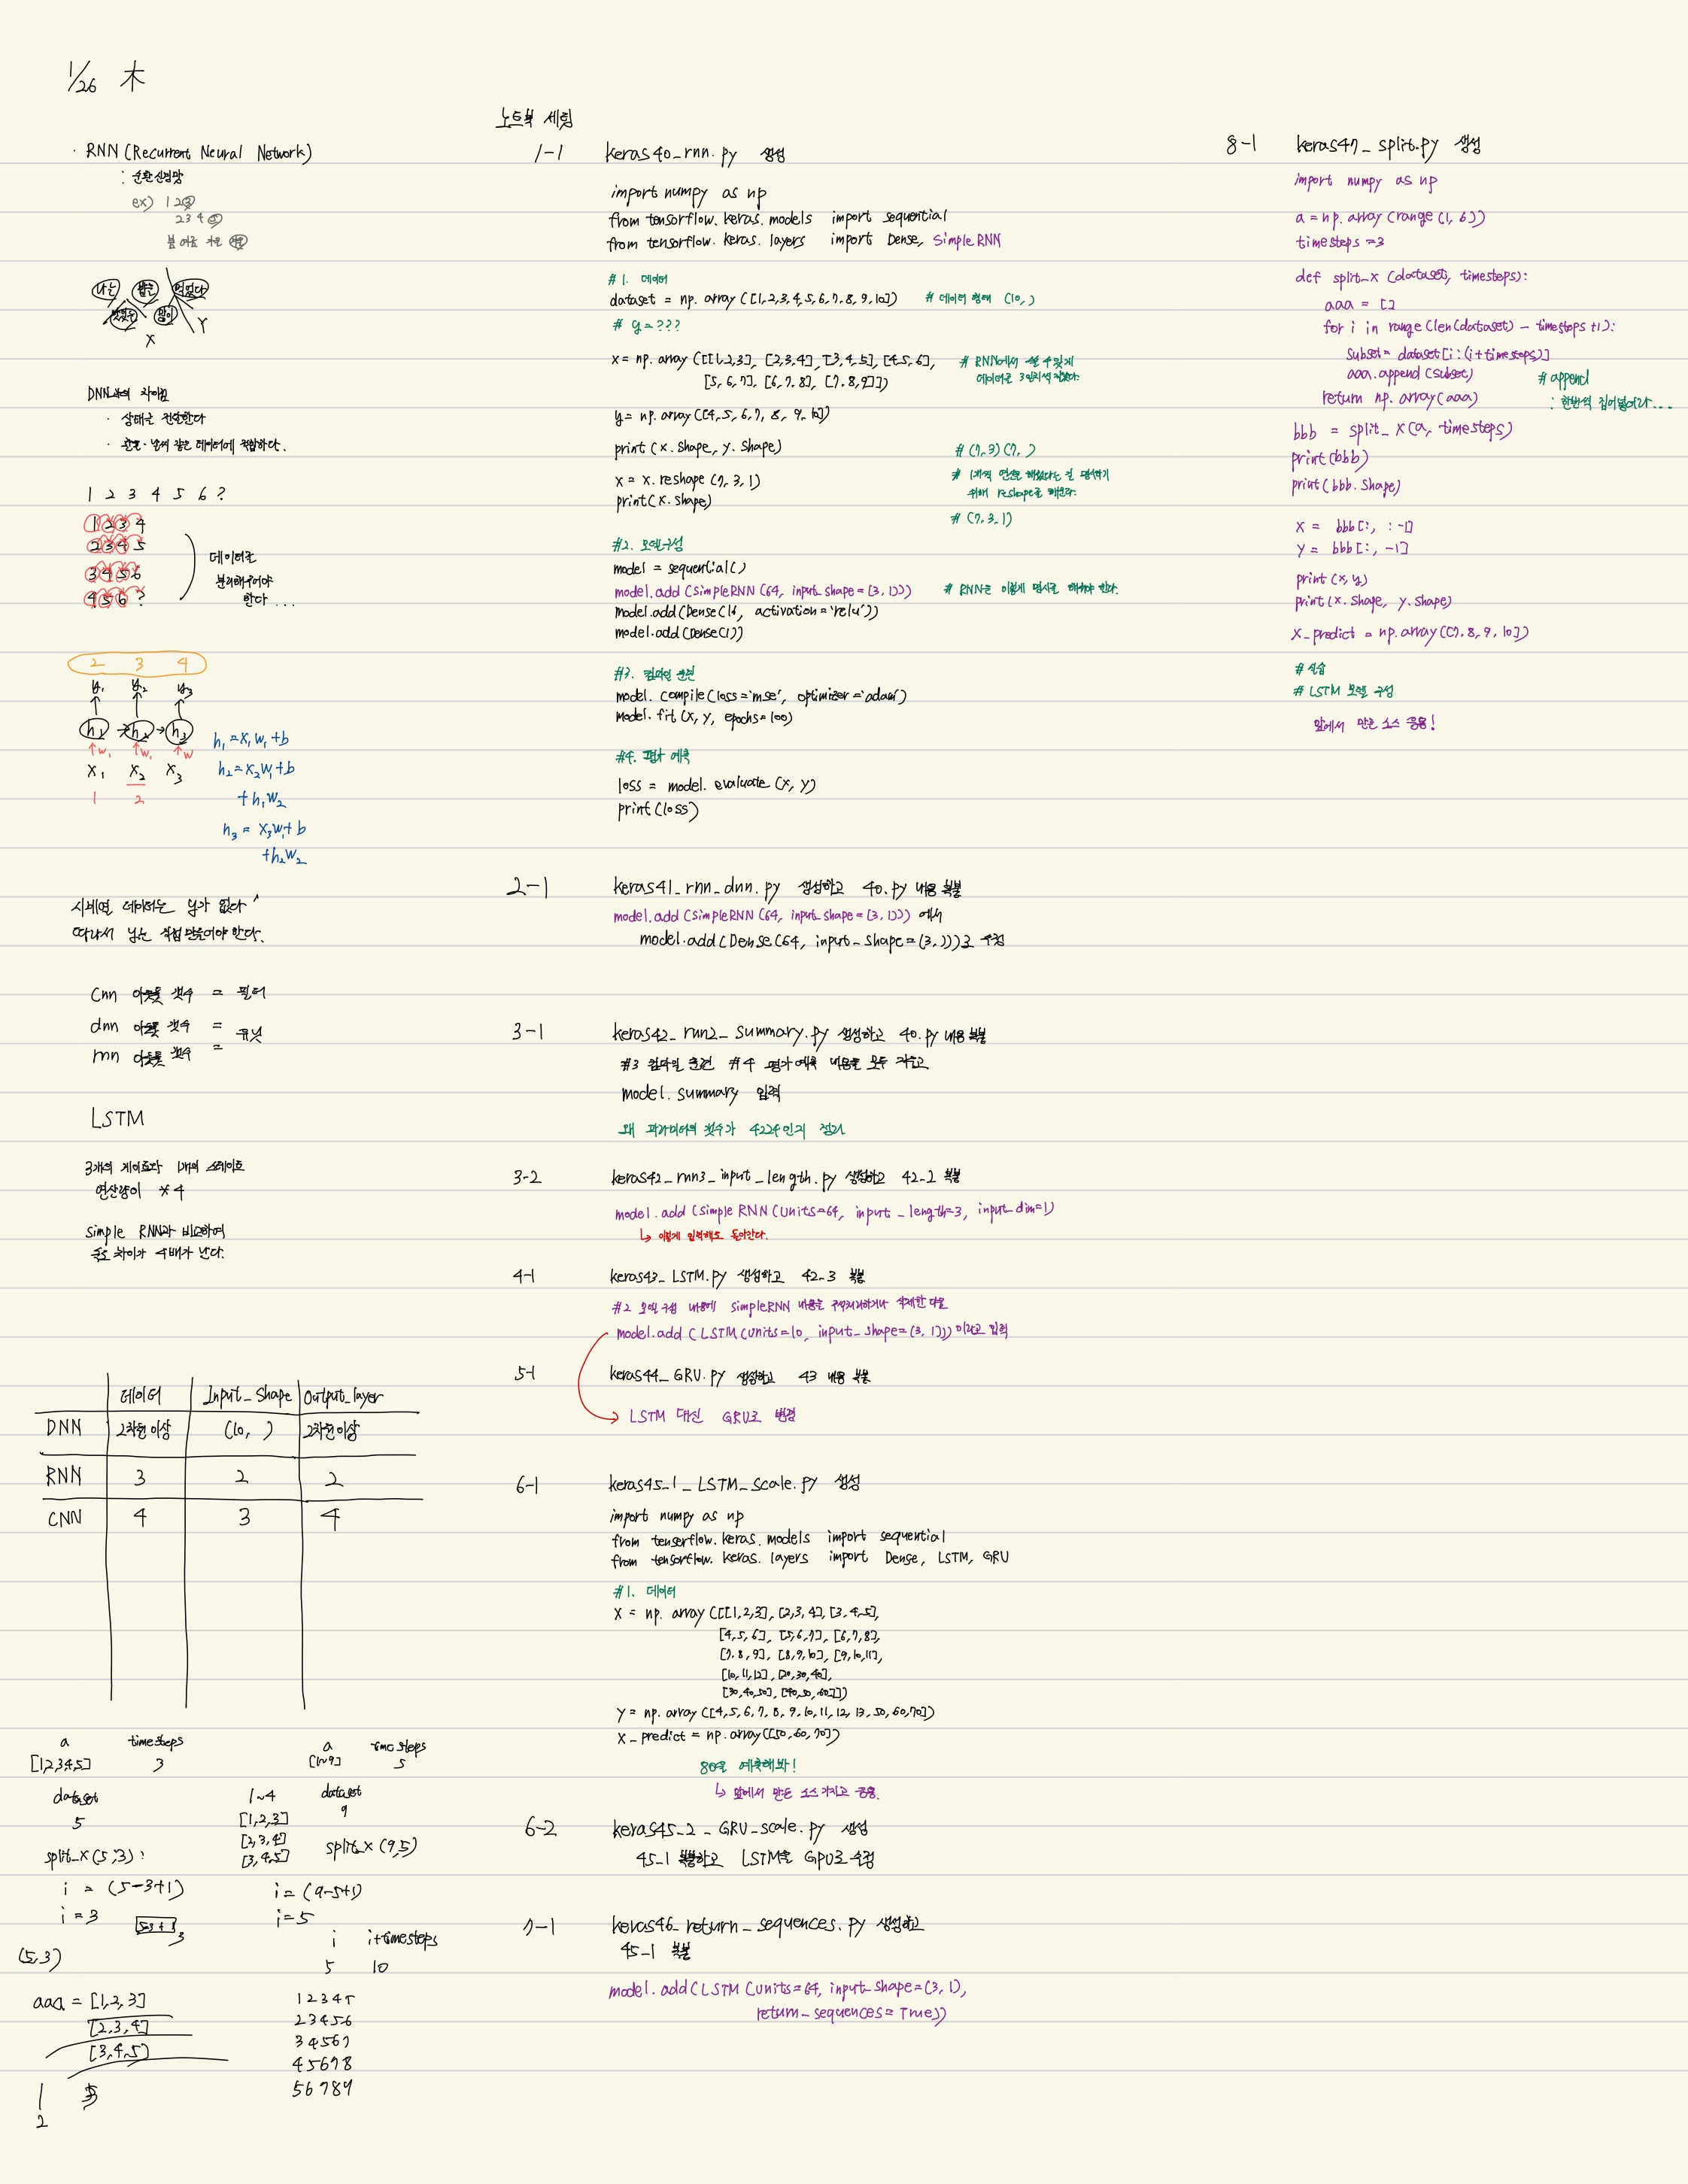 1/26 木
· RNN (Recurrent Neural Network)
: 순환신경망
ex) 1 2 3
2 3 4 5
나는 밥을 먹었다
맛있는 많이
X Y
DNN과의 차이점
· 상태를 전달한다
날씨 같은 데이터에 적합하다.
1 2 3 4 5 6 ?
1 2 3 4
2 3 4 5
3 4 5 6
4 5 6 ?
데이터를
분리해주어야
한다 ...
2 3 4
y₁ y₂ y₃
h₁ → h₂ → h₃
↑w₁ ↑w₁ ↑w
x₁ x₂ x₃
1 2
h₁ = x₁w₁ + b
h₂ = x₂w₁ + b
+ h₁w₂
h₃ = x₃w₁ + b
+ h₂w₂
시계열 데이터는 y가 없다
따라서 y는 직접 만들어야 한다.
Cnn 아웃풋 갯수 = 필터
dnn 아웃풋 갯수 = 유닛
rnn 아웃풋 갯수 =
LSTM
3개의 게이트와 1개의 스테이트
연산량이 * 4
simple RNN과 비교하여
속도 차이가 4배가 난다.
데이터 Input_shape Output_layer
DNN 2차원 이상 (10, ) 2차원 이상
RNN 3 2 2
CNN 4 3 4
a timesteps
[1,2,3,4,5] 3
dataset
5
split_x (5,3) :
i = (5-3+1)
i = 3
5-3+1
3
(5,3)
aaa = [1,2,3]
[2,3,4]
[3,4,5]
1 3
2
a timesteps
[1~9] 5
1~4 dataset
[1,2,3] 9
[2,3,4]
[3,4,5] split_x (9,5)
i = (9-5+1)
i = 5
i i+timesteps
5 10
1 2 3 4 5
2 3 4 5 6
3 4 5 6 7
4 5 6 7 8
5 6 7 8 9
노트북 세팅
1-1 keras40_rnn.py 생성
import numpy as np
from tensorflow.keras.models import sequential
from tensorflow.keras.layers import Dense, SimpleRNN
#1. 데이터
dataset = np.array([1,2,3,4,5,6,7,8,9,10]) # 데이터 형태 (10, )
# y = ???
x = np.array([[1,2,3], [2,3,4], [3,4,5], [4,5,6], # RNN에서 쓸 수 있게
[5,6,7], [6,7,8], [7,8,9]]) 데이터를 3일치씩 잘랐다.
y = np.array([4, 5, 6, 7, 8, 9, 10])
print (x.shape, y.shape) # (7, 3) (7, )
x = x.reshape (7, 3, 1) # 1개씩 연산을 해줬다는 걸 명시하기
print(x.shape) 위해 reshape을 해준다.
# (7, 3, 1)
#2. 모델구성
model = sequential()
model.add (SimpleRNN (64, input_shape = (3, 1))) # RNN은 이렇게 명시를 해줘야 한다.
model.add(Dense(16, activation='relu'))
model.add(Dense(1))
#3. 컴파일 훈련
model.compile(loss='mse', optimizer='adam')
model.fit (x, y, epochs=100)
#4. 평가 예측
loss = model.evaluate (x, y)
print(loss)
2-1 keras41_rnn_dnn.py 생성하고 40.py 내용 복붙
model.add (SimpleRNN (64, input_shape = (3, 1))) 에서
model.add (Dense (64, input_shape=(3, )))로 수정
3-1 keras42_rnn2_summary.py 생성하고 40.py 내용 복붙
#3 컴파일 훈련 #4 평가 예측 내용을 모두 지우고
model.summary 입력
왜 파라미터의 갯수가 4224인지 정리
3-2 keras42_rnn3_input_length.py 생성하고 42_2 복붙
model.add (Simple RNN (units=64, input_length=3, input_dim=1)
↳ 이렇게 입력해도 돌아간다.
4-1 keras43_LSTM.py 생성하고 42_3 복붙
#2 모델 구성 내용에 SimpleRNN 내용을 주석처리하거나 삭제한 다음
model.add (LSTM (units=10, input_shape=(3, 1))) 이라고 입력
5-1 keras44_GRU.py 생성하고 43 내용 복붙
LSTM 대신 GRU로 변경
6-1 keras45_1_LSTM_scale.py 생성
import numpy as np
from tenserflow.keras.models import sequential
from tensorflow.keras.layers import Dense, LSTM, GRU
#1. 데이터
x = np.array ([[1,2,3], [2,3,4], [3,4,5],
[4,5,6], [5,6,7], [6,7,8],
[7,8,9], [8,9,10], [9,10,11],
[10,11,12], [20,30,40],
[30,40,50], [40,50,60]])
y = np.array ([4,5,6,7,8,9,10,11,12,13,50,60,70])
x_predict = np.array([50,60,70])
80을 예측해봐!
↳ 앞에서 만든 소스 가지고 응용.
6-2 keras45_2_GRU_scale.py 생성
45_1 복붙하고 LSTM을 GPU로 수정
7-1 keras46_return_sequences.py 생성하고
45_1 복붙
model.add(LSTM (units=64, input_shape=(3, 1),
return_sequences=True))
8-1 keras47_split.py 생성
import numpy as np
a = np.array (range (1, 6))
timesteps = 3
def split_x (dataset, timesteps):
aaa = []
for i in range (len(dataset) - timesteps +1):
subset = dataset[i:(i+timesteps)]
aaa.append (subset) # append
return np.array(aaa) : 한번씩 집어넣어라...
bbb = split_x(a, timesteps)
print(bbb)
print(bbb.shape)
x = bbb[:, :-1]
y = bbb[:, -1]
print (x,y)
print(x.shape, y.shape)
x_predict = np.array([7, 8, 9, 10])
# 실습
# LSTM 모델 구성
앞에서 만든 소스 응용!